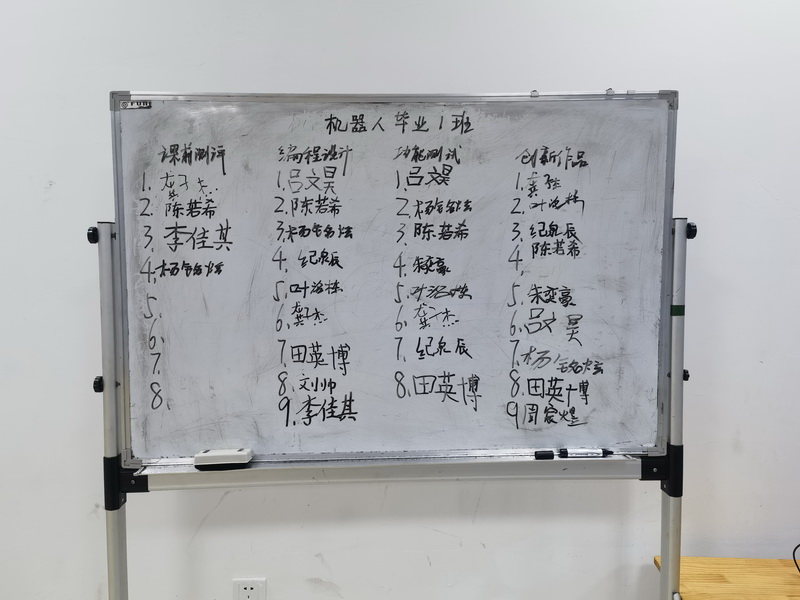 机器人毕业1班
课前测评
1. 龚子杰
2. 陈若希
3. 李佳其
4. 杨铭炫
5.
6.
7.
8.
编程设计
1. 吕文昊
2. 陈若希
3. 杨铭炫
4. 纪泉辰
5. 叶洺林
6. 龚子杰
7. 田英博
8. 刘帅
9. 李佳其
功能测试
1. 吕文昊
2. 杨铭炫
3. 陈若希
4. 朱奕豪
5. 叶洺林
6. 龚子杰
7. 纪泉辰
8. 田英博
创新作品
1.
2. 叶洺林
3. 纪泉辰
4. 陈若希
5. 朱奕豪
6. 吕文昊
7. 杨铭炫
8. 田英博
9. 周宸煜